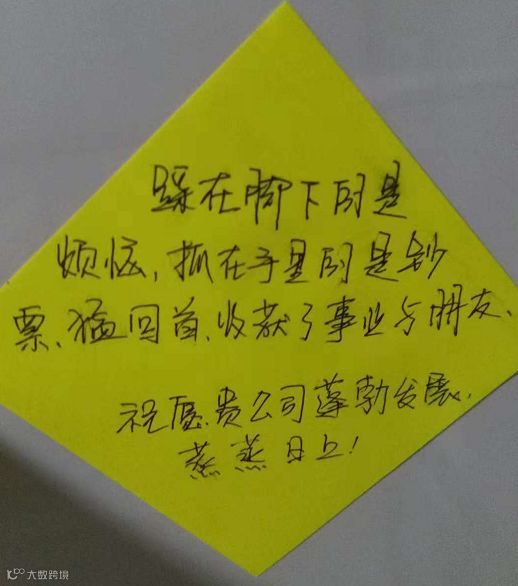 踩在脚下的是
烦恼，抓在手里的是钞
票、猛回首、收获了事业与朋友、
祝愿贵公司蓬勃发展、
蒸蒸日上！
大数跨境